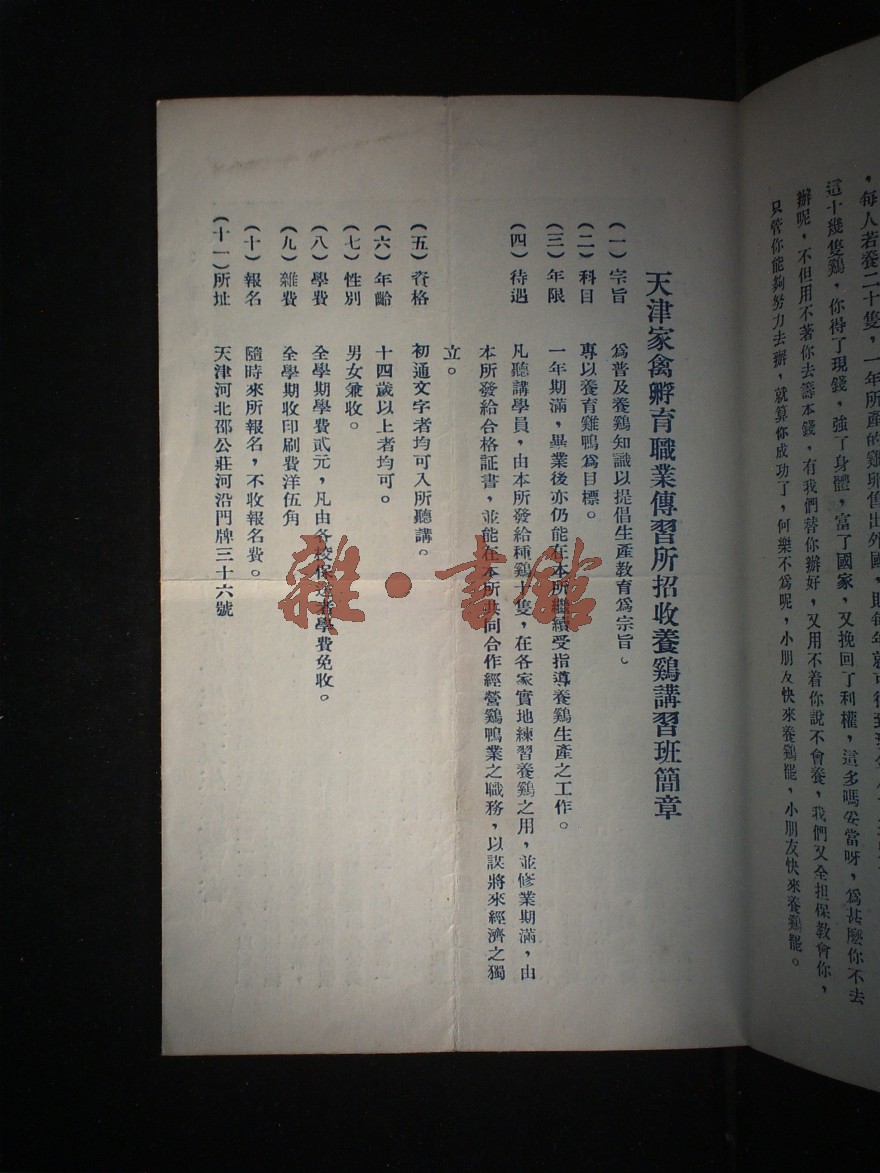 ，每人若養二十隻，一年所產的雞卵售出外國，則每年就可得到
這十幾隻鷄，你得了現錢，強了身體，富了國家，又挽回了利權，這多嗎妥當呀，為甚麼你不去
辦呢，不但用不著你去籌本錢，有我們替你辦好，又用不着你說不會養，我們又全担保教會你，
只管你能夠努力去辦，就算你成功了，何樂不為呢，小朋友快來養鷄罷，小朋友快來養鷄罷。
天津家禽孵育職業傳習所招收養鷄講習班簡章
（一）宗旨　為普及養鷄知識以提倡生產教育為宗旨。
（二）科目　專以養育雞鴨為目標。
（三）年限　一年期滿，畢業後亦仍能在本所繼續受指導養鷄生產之工作。
（四）待遇　凡聽講學員，由本所發給種鷄十隻，在各家實地練習養鷄之用，並修業期滿，由
本所發給合格証書，並能在本所共同合作經營鷄鴨業之職務，以謀將來經濟之獨
立。
（五）資格　初通文字者均可入所聽講。
（六）年齡　十四歲以上者均可。
（七）性別　男女兼收。
（八）學費　全學期學費貳元，凡由各校保送者學費免收。
（九）雜費　全學期收印刷費洋伍角
（十）報名　隨時來所報名，不收報名費。
（十一）所址　天津河北邵公莊河沿門牌三十六號
雜·書館